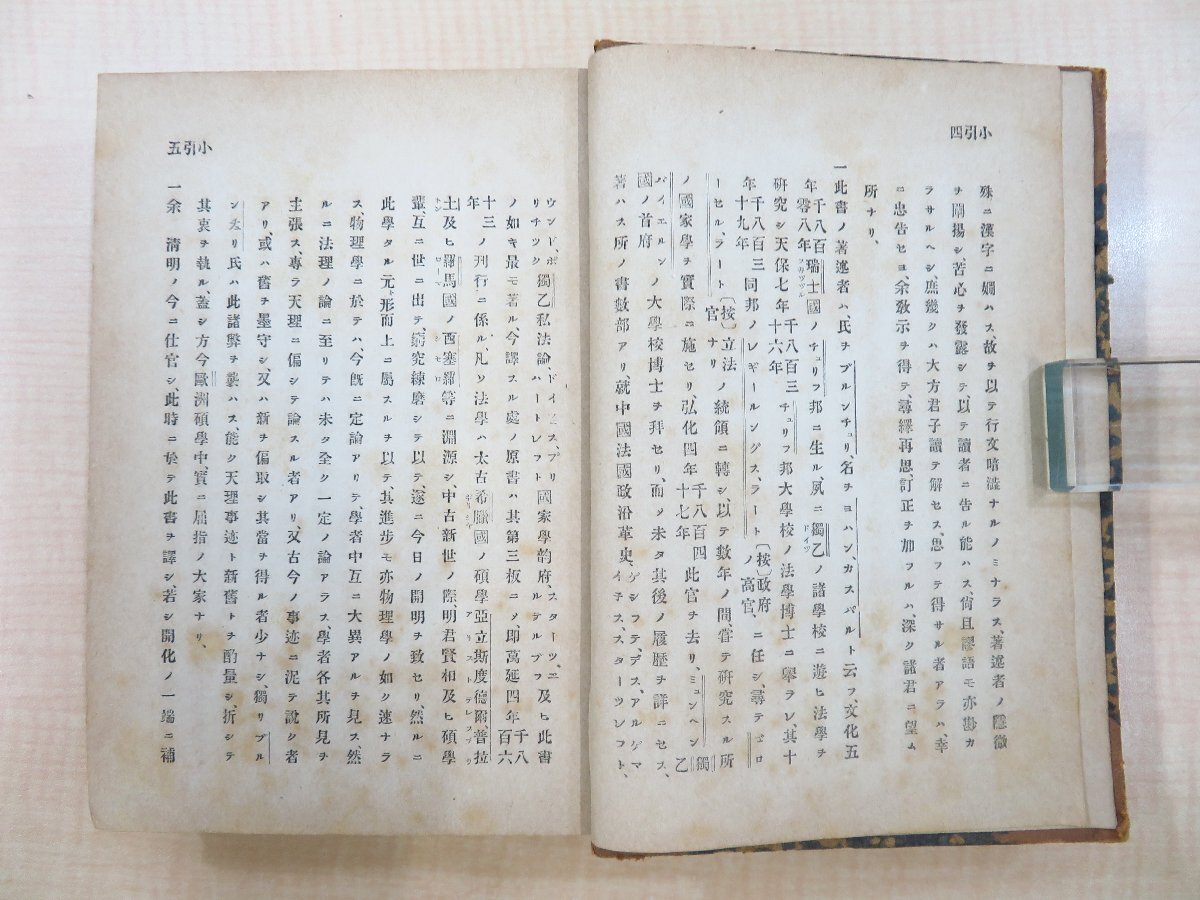 小引四
殊ニ漢字ニ嫺ハス、故ヲ以テ行文暗澁ナルノミナラス、著述者ノ隱微
ヲ闡揚シ、苦心ヲ發露シテ、以テ讀者ニ告ル能ハス、尙且謬語モ亦尠カ
ラサルヘシ、庶幾クハ大方君子讀テ解セス、思フテ得サル者アラハ、幸
ニ忠吿セヨ余敎示ヲ得テ、尋繹再思、訂正ヲ加フルハ、深ク諸君ニ望ム
所ナリ、
一此書ノ著述者ハ、氏ヲブルンチュリ、名ヲヨハン、カスパルト云フ、文化五
年千八百零八年瑞士國ノチュリフ邦ニ生ル、夙ニ獨乙ドイツノ諸學校ニ遊ヒ法學ヲ
硏究シ天保七年千八百三十六年チュリフ邦大學校ノ法學博士ニ擧ラレ、其十
年千八百三十九年同邦ノレギールングス、ラート〔按〕政府ノ高官、ニ任シ、尋テゼロ
ーセル、ラート〔按〕立法官ナリノ統領ニ轉シ、以テ數年ノ間、嘗テ硏究スル所
ノ國家學ヲ實際ニ施セリ、弘化四年千八百四十七年此官ヲ去リ、ミュンヘン獨乙
バイエルン國ノ首府ノ大學校博士ヲ拜セリ、而メ未タ其後ノ履歷ヲ詳ニセス、
著ハス所ノ書數部アリ就中國法國政沿革史、ゲシフテ、デス、アルゲマイチス、スターツレフト、
小引五
ウンド、ポリチック獨乙私法論、ドイエス、プリハートレフト國家學韵府、スターツ、エルテルブフ及ヒ此書
ノ如キ最モ著ル、今譯スル處ノ原書ハ其第三板ニメ即萬延四年千八百六
十三年ノ刋行ニ係ル、凡ソ法學ハ太古希臘ギリシャ國ノ碩學亞立斯度德爾アリストテレス、普拉
士及ヒ羅馬ローマ國ノ西塞羅シセロ等ニ淵源シ、中古新世ノ際、明君賢相及ヒ碩學
輩、互ニ世ニ出テ、窮究練磨シテ以テ、遂ニ今日ノ開明ヲ致セリ、然ルニ
此學タル元ト形而上ニ屬スルヲ以テ、其進步モ亦物理學ノ如ク速ナラ
ス、物理學ニ於テハ、今旣ニ定論アリテ、學者中互ニ大異アルヲ見ス、然
ルニ法理ノ論ニ至リテハ未タ全ク一定ノ論アラス、學者各其所見ヲ
主張ス、專ラ天理ニ偏シテ論スル者アリ、又古今ノ事迹ニ泥テ說ク者
アリ、或ハ舊ヲ墨守シ、又ハ新ヲ偏取シ其當ヲ得ル者少ナシ、獨リブル
ンチュリ氏ハ此諸弊ヲ襲ハス、能ク天理事迹ト新舊トヲ酌量シ、折シテ
其衷ヲ執ル、蓋シ方今歐洲碩學中、實ニ屈指ノ大家ナリ、
一余 淸明ノ今ニ仕官シ、此時ニ於テ此書ヲ譯シ、若シ開化ノ一端ニ補